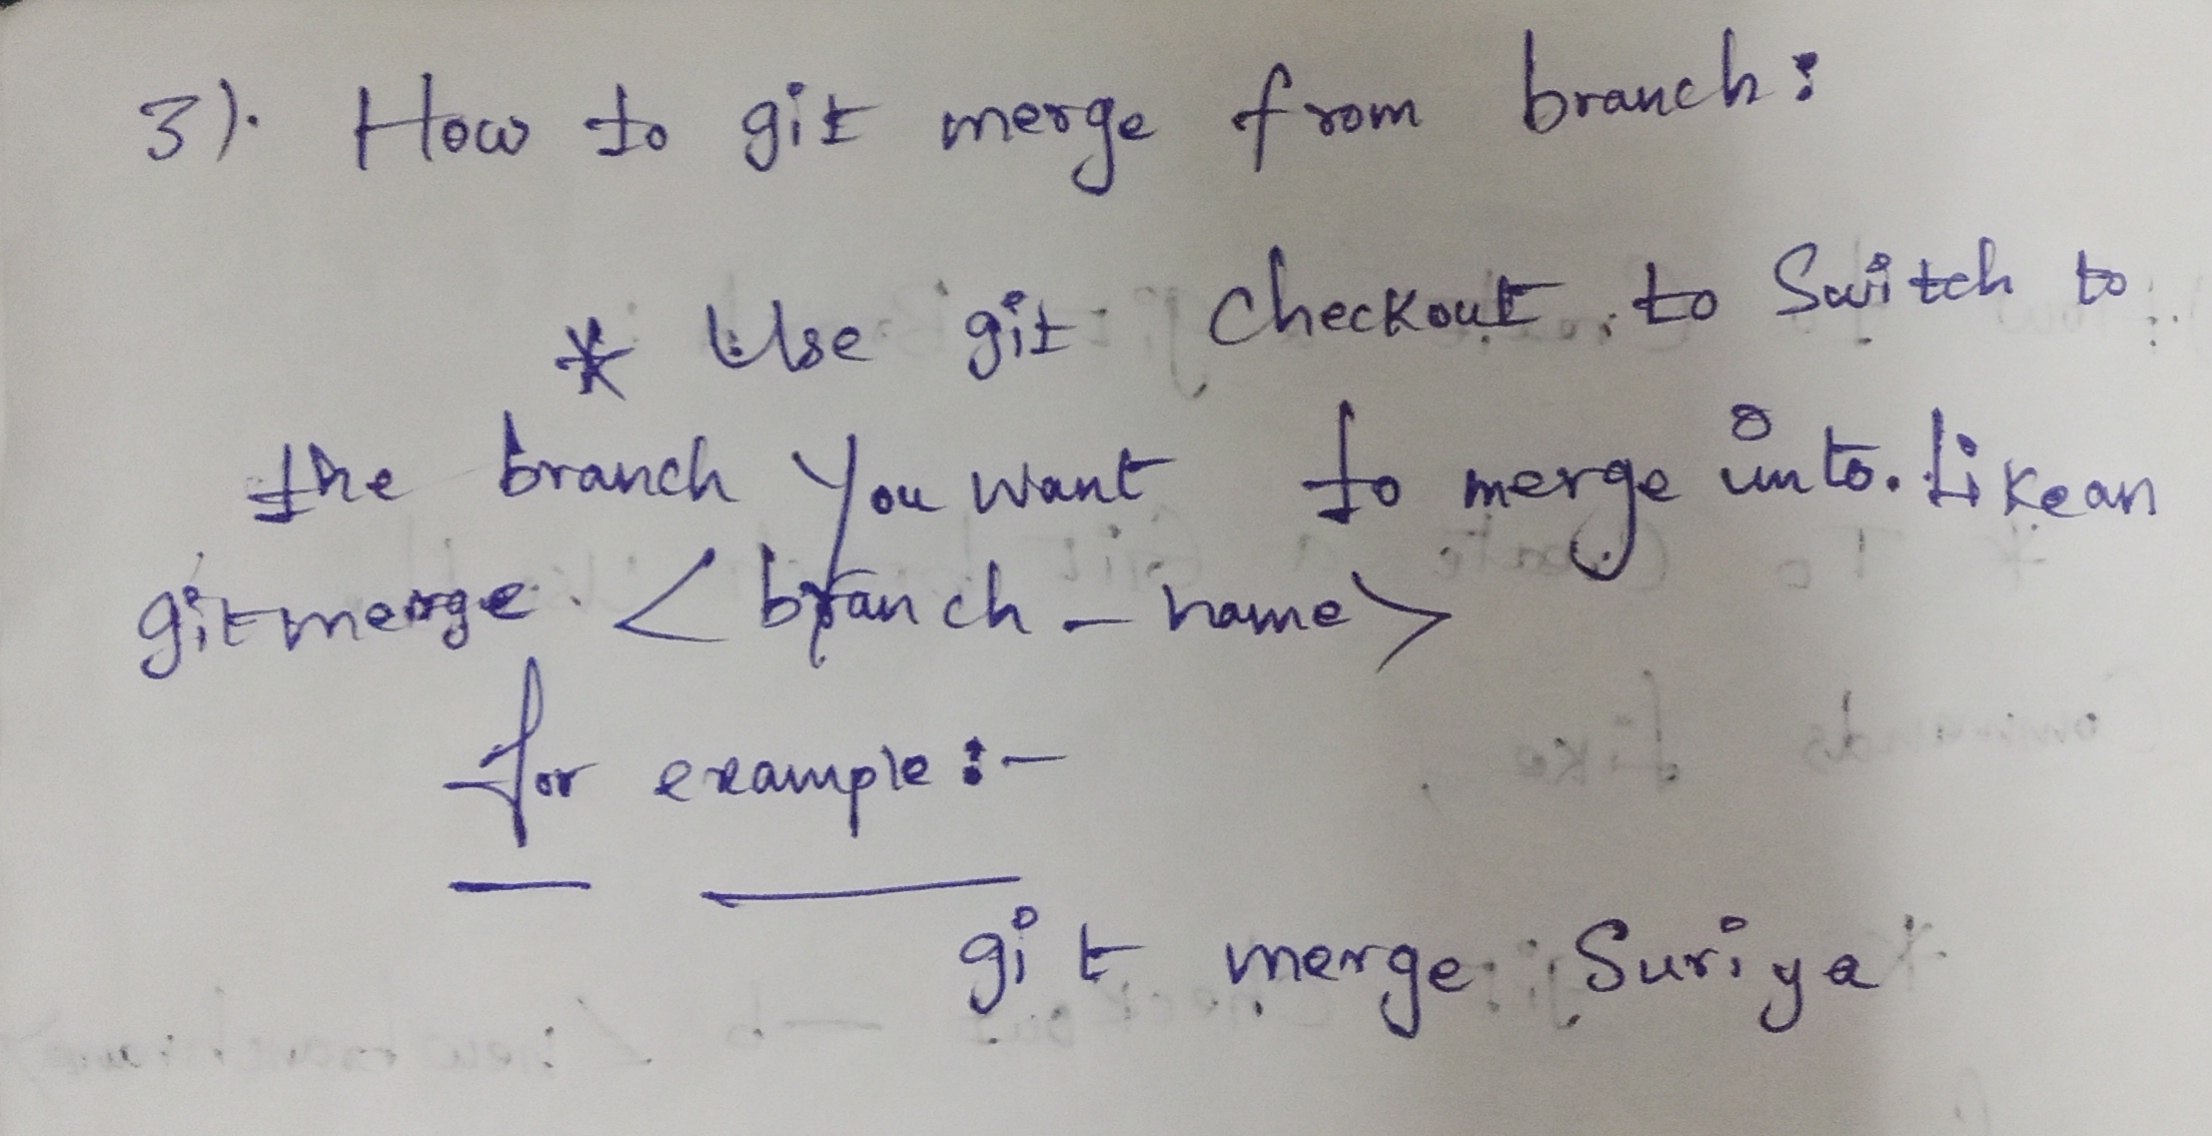 3). How to git merge from branch:
* Use git checkout to Switch to
the branch you want to merge into. Like an
git merge <branch_name>
for example:-
git merge Suriya